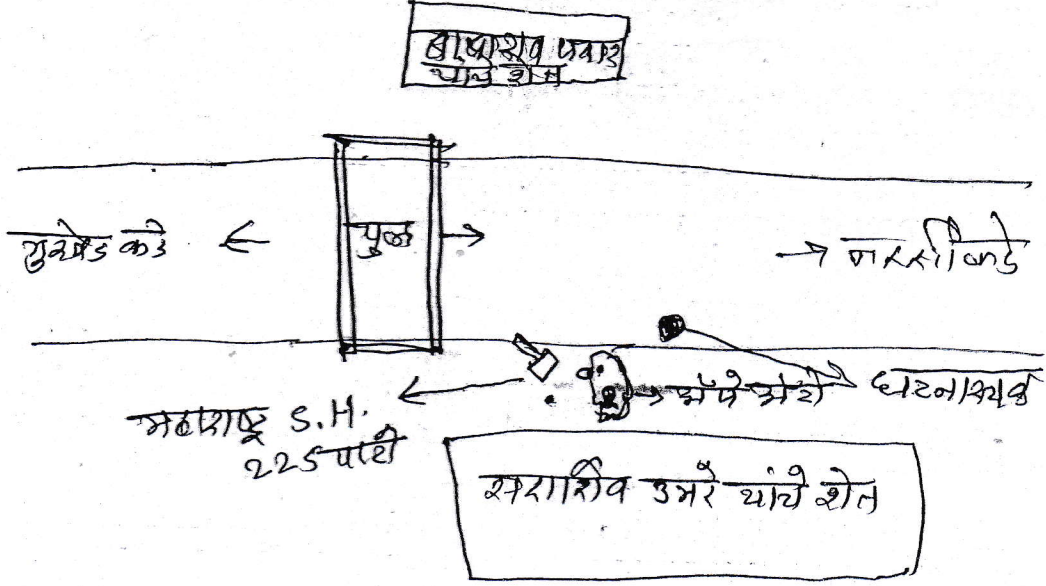 बापुराव पवार
यांचे शेत
मुखेड कडे
पुल
नरसीकडे
अॅपे अॅटो
घटनास्थळ
महाराष्ट्र S.H.
225 पाटी
सदाशिव उमरे यांचे शेत